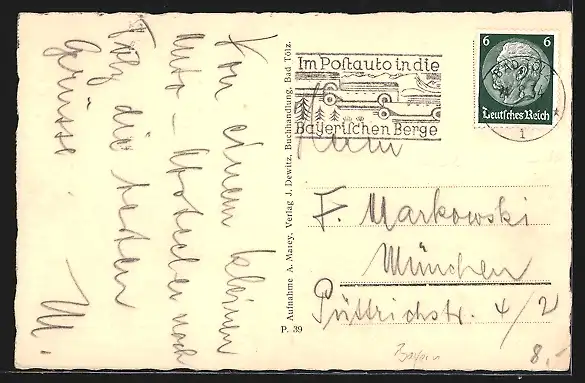 Von einem kleinen
Auto-Abstecher nach
Tölz die besten
Grüsse.
M.
Aufnahme A. Marey, Verlag J. Dewitz, Buchhandlung, Bad Tölz.
P. 39
Im Postauto in die
Bayerischen Berge
6 6
Deutsches Reich
1
F. Markowski
München
Püttrichstr. 4/2
Bayern
8.-